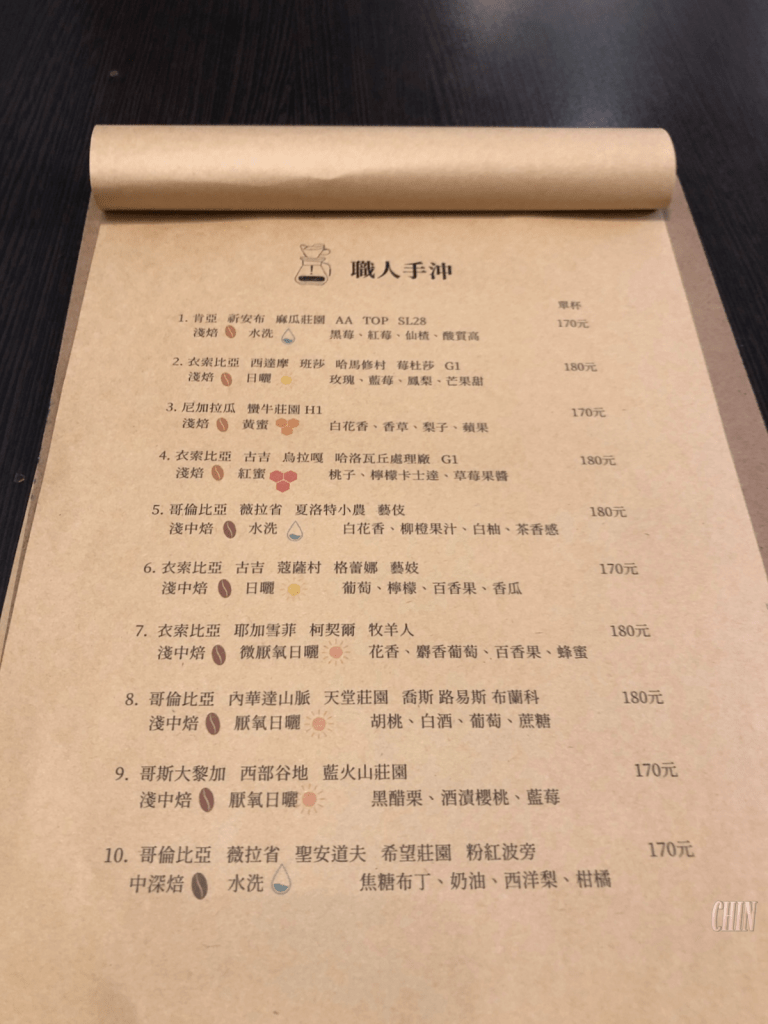 職人手沖
單杯
1. 肯亞 祈安布 麻瓜莊園 AA TOP SL28 170元
淺焙 水洗 黑莓、紅莓、仙楂、酸質高
2. 衣索比亞 西達摩 班莎 哈馬修村 莓杜莎 G1 180元
淺焙 日曬 玫瑰、藍莓、鳳梨、芒果甜
3. 尼加拉瓜 蠻牛莊園 H1 170元
淺焙 黃蜜 白花香、香草、梨子、蘋果
4. 衣索比亞 古吉 烏拉嘎 哈洛瓦丘處理廠 G1 180元
淺焙 紅蜜 桃子、檸檬卡士達、草莓果醬
5. 哥倫比亞 薇拉省 夏洛特小農 藝伎 180元
淺中焙 水洗 白花香、柳橙果汁、白柚、茶香感
6. 衣索比亞 古吉 蔻薩村 格蕾娜 藝妓 170元
淺中焙 日曬 葡萄、檸檬、百香果、香瓜
7. 衣索比亞 耶加雪菲 柯契爾 牧羊人 180元
淺中焙 微厭氧日曬 花香、麝香葡萄、百香果、蜂蜜
8. 哥倫比亞 內華達山脈 天堂莊園 喬斯 路易斯 布蘭科 180元
淺中焙 厭氧日曬 胡桃、白酒、葡萄、蔗糖
9. 哥斯大黎加 西部谷地 藍火山莊園 170元
淺中焙 厭氧日曬 黑醋栗、酒漬櫻桃、藍莓
10. 哥倫比亞 薇拉省 聖安道夫 希望莊園 粉紅波旁 170元
中深焙 水洗 焦糖布丁、奶油、西洋梨、柑橘
CHIN